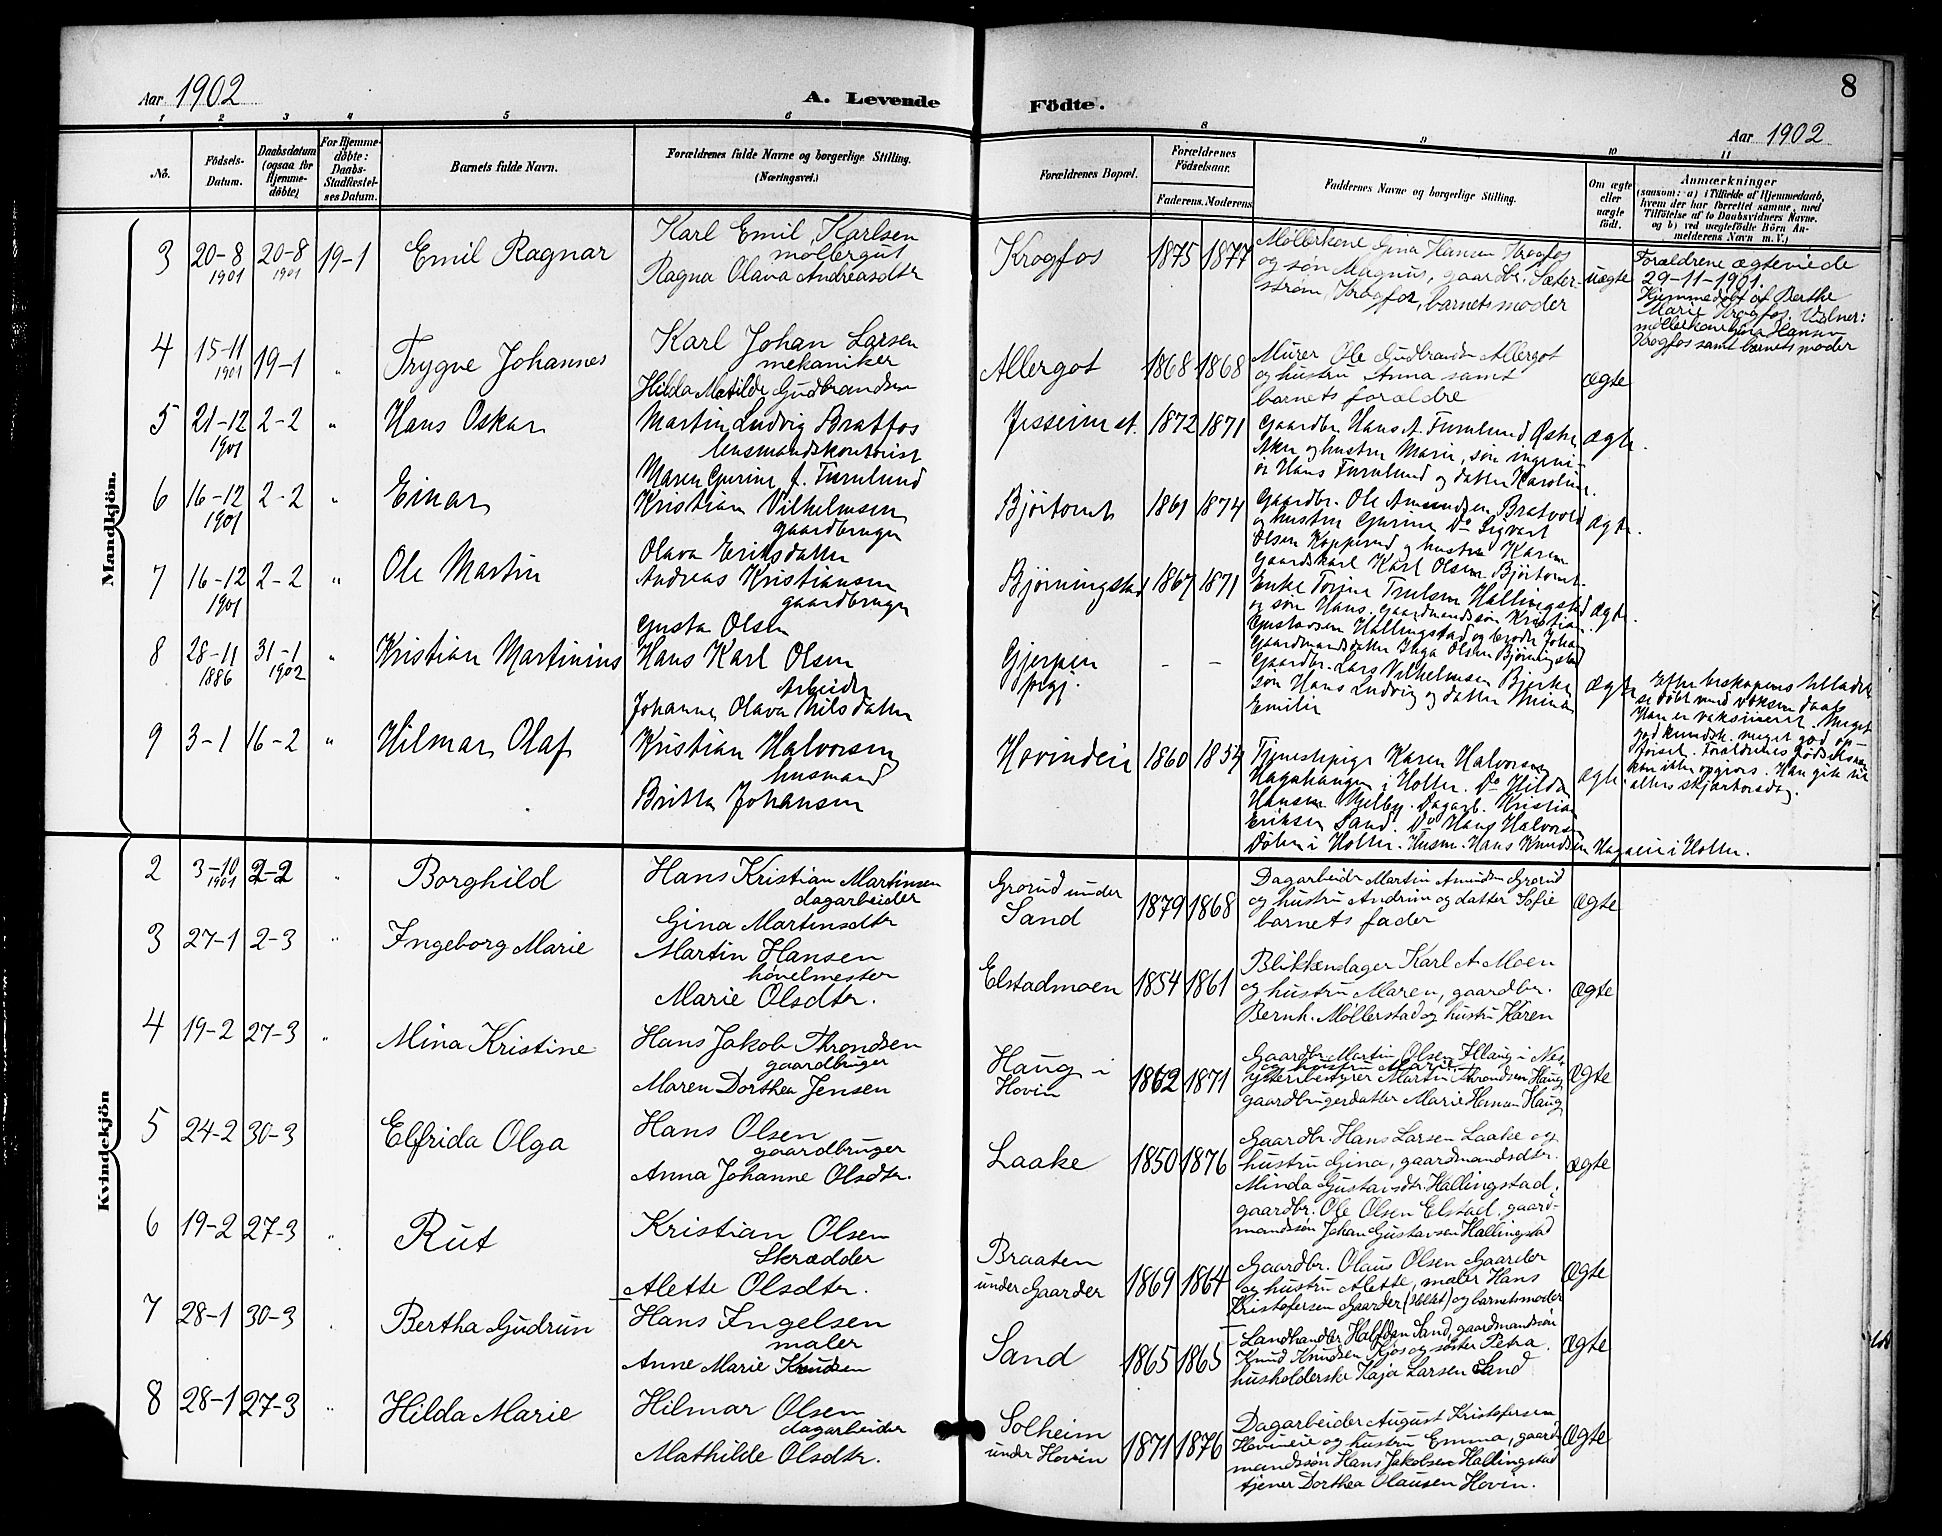 Aar 1902
A. Levende
Födte.
8
Aar 1902
1 2 3 4 5 6 8 9 10 11
No.
Födsels-
Datum.
Daabsdatum
(ogsaa for
Hjemme-
döbte).
For Hjemme-
döbte:
Daabs-
Stadfæstel-
ses Datum.
Barnets fulde Navn.
Forældrenes fulde Navne og borgerlige Stilling.
(Næringsvei.)
Forældrenes Bopæl.
Forældrenes
Födselsaar.
Faderens. Moderens
Faddernes Navne og borgerlige Stilling.
Om ægte
eller
uægte
födt.
Anmærkninger
(saasom: a) i Tilfælde af Hjemmedaab,
hvem der har forrettet samme, med
Tilföielse af to Daabsvidners Navne.
og b) ved uægtefödte Börn An-
melderens Navn m. V.)
Mandkjön.
3
20-8
1901
20-8
1901
19-1
Emil Ragnar
Karl Emil Karlsen
møllergut
Ragna Olava Andreasdtr
Krogfos
1875
1877
Møllerkone Gina Hansen Krogfos
og søn Magnus, gaardbr. Sæter-
strøm, Krogfos, barnets moder
uægte
Forældrene ægteviede
29-11-1901.
Hjemmedøbt af Berthe
Marie Krogfos. Vidner:
møllerkone Gina Hansen
Krogfos samt barnets moder
4
15-11
1901
19-1
"
Trygve Johannes
Karl Johan Larsen
mekaniker
Hilda Matilde Gudbrandsen
Allergot
1868
1868
Murer Ole Gudbrandsn Allergot
og hustru Anna samt
barnets forældre
ægte
5
21-12
1901
2-2
"
Hans Oskar
Martin Ludvig Bratfos
lensmandskontorist
Maren Gurine f. Furulund
Jesseim st.
1872
1871
Gaardbr. Hans A. Furulund Østre
Aker og hustru Marie, søn ingeni-
ør Hans Furulund og datter Karoline.
ægte.
6
16-12
1901
2-2
"
Einar
Kristian Vilhelmsen
gaardbruger
Olava Eriksdatter
Bjørtomt
1861
1874
Gaardbr. Ole Amundsen Bratvold
og hustru Gurine Do Sigvart
Olsen Kopperud og hustru Karen
Gaardskarl Karl Olsen Bjørtomt.
ægte.
7
16-12
1901
2-2
"
Ole Martin
Andreas Kristiansen
gaardbruger
Gusta Olsen
Bjørningstad
1867
1871
Enke Torine Trulsen Hallingstad
og søn Hans. Gaardmandssøn Kristian
Gustavsen Hallingstad og broder Johan
Gaardmandsdatter Inga Olsen Bjørningstad
ægte.
8
28-11
1886
31-1
1902
"
Kristian Martinius
Hans Karl Olsen
Arbeider
Johanne Olava Nilsdatter
Gjerpen
prgj.
-
-
Gaardbr. Lars Vilhelmsen Bjerke
søn Hans Ludvig og datter Minda
Emilie
ægte
Efter biskopens tilladel-
se døbt med voksen daab
Han er vaksineret. Meget
god kundsk. meget god op-
førsel. Forældrenes fødselsaar
kan ikke opgives. Han gik til
alters skjærtorsdag.
9
3-1
16-2
"
Hilmar Olaf
Kristian Halvorsen
husmand
Britta Johansen
Hovindeie
1860
1857
Tjenestepige Karen Halvorsen
Hagahaugen i Holter. Do Hilda
Hansen Melby. Dagarb. Kristian
Eriksen Sand. Do Hans Halvorsen
Dølen i Holter. Husm. Hans Knudsen Hageeie i Holter.
ægte
Kvindekjön
2
3-10
1901
2-2
"
Borghild
Hans Kristian Martinsen
dagarbeider
Gina Martinsdtr
Grorud under
Sand
1879
1868
Dagarbeider Martin Amundsn Grorud
og hustru Andrine og datter Sofie
barnets fader
ægte
3
27-1
2-3
"
Ingeborg Marie
Martin Hansen
høvelmester
Marie Olsdtr.
Elstadmoen
1854
1861
Blikkendager Karl A. Moen
og hustru Maren, gaardbr.
Bernh. Møllerstad og hustru Karen
ægte
4
19-2
27-3
"
Mina Kristine
Hans Jakob Throndsen
gaardbruger
Maren Dorthea Jensen
Haug i
Hovin
1862
1871
Gaardbr. Martin Olsen Haug i Nes
og hustru Marie
Martin Throndsen Haug
gaardbrugerdatter Marie Haug
Ægte
5
24-2
30-3
Elfrida Olga
Hans Olsen
gaardbruger
Anna Johanne Olsdtr.
Laake
1850
1876
Gaardbr. Hans Larsen Laake og
hustru Gina, gaardmandsdtr.
Minda Gustavsdtr. Hallingstad,
gaardbr. Ole Olsen Elstad, gaard-
mandssøn Johan Gustavsen Hallingstad
ægte
6
19-2
27-3
"
Rut
Kristian Olsen
Skrædder
Alette Olsdtr.
Braaten
under Gaarder
1869
1864
Gaardbr. Olaus Olsen Gaarder
og hustru Alette, maler Hans
Kristofersen Gaarder og barnets moder
Ægte
7
28-1
30-3
Bertha Gudrun
Hans Ingelsen
maler
Anne Marie Knudsen
Sand
1865
1865
Landhandler Halfdan Sand, gaardmandssøn
Knud Knudsen Kjos og søster Petra.
husholderske Kaja Larsen Sand
Ægte
8
28-1
27-3
"
Hilda Marie
Hilmar Olsen
dagarbeider
Mathilde Olsdtr.
Solheim
under Hovin
1871
1876
Dagarbeider August Kristofersen
Hovineie og hustru Emma, gaard-
mandssøn Hans Jakobsen Hallingstad
tjener Dorthea Olausen Hovin.
Ægte